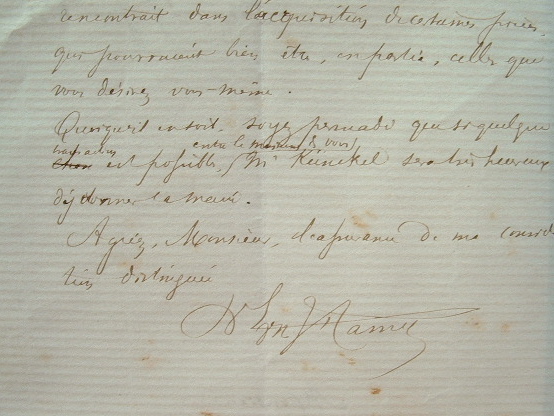 rencontrait dans l'acquisition de certaines pièces,
qui pourraient bien être, en partie, celles que
vous désirez vous-même.
Quoiqu'il en soit, soyez persuadé que si quelque
transaction entre le museum & vous
chose est possible, Mr Künckel sera très heureux
d'y donner la main.
Agréez, Monsieur, l'assurance de ma considéra
tion distinguée
Dr